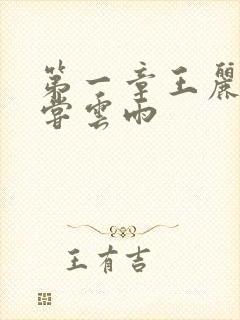 第一章王麗
嘗雲雨
王有吉